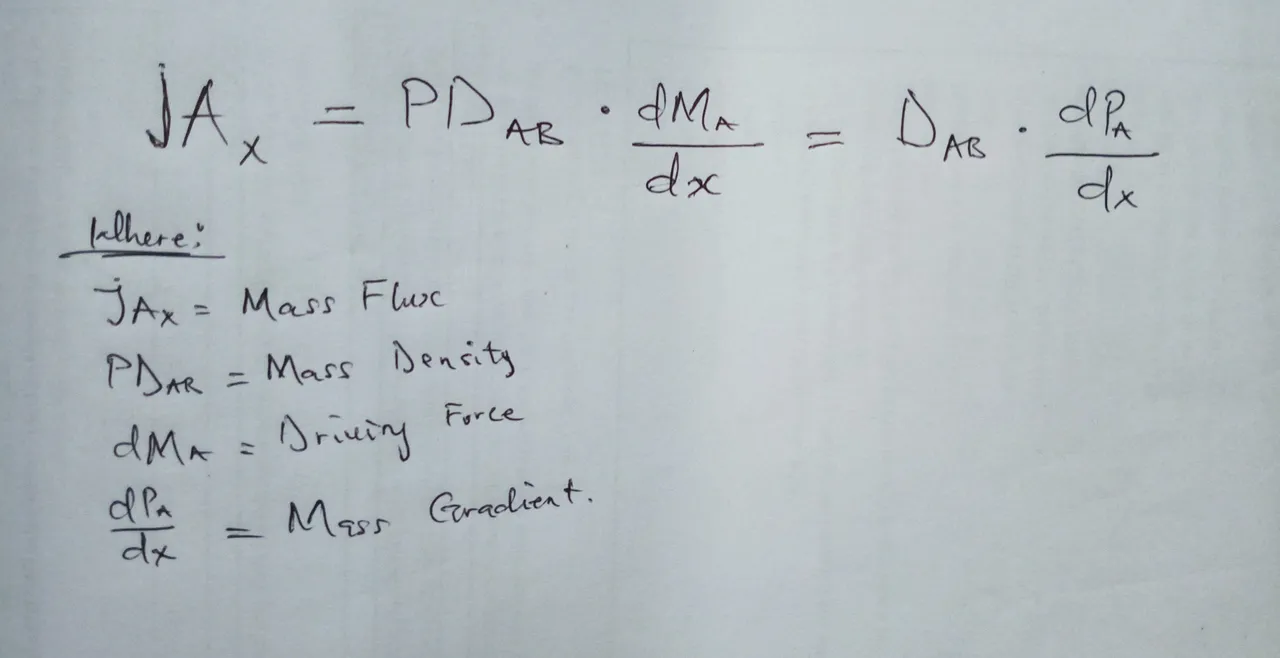 jAx = PD_AB · dM_A/dx = D_AB · dP_A/dx
Where:
jAx = Mass Flux
PD_AB = Mass Density
dM_A = Driving Force
dP_A/dx = Mass Gradient.